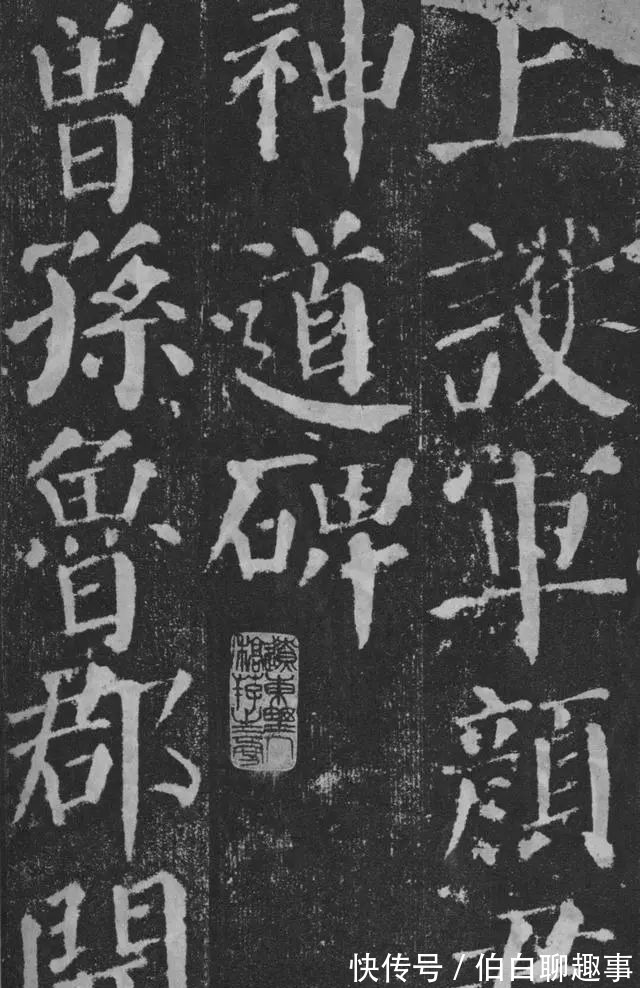 上護軍顔君
神道碑
曽孫魯郡開
快传号/伯白聊趣事